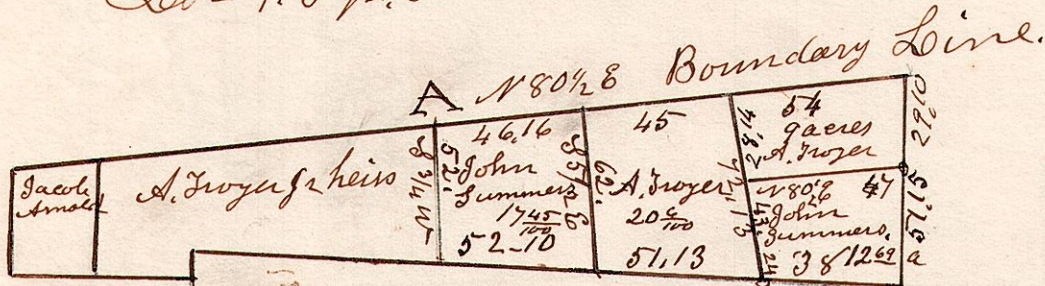 N 80½ E Boundary Line.
A
Jacob
Arnold
A. Troyer Jr heirs
S ¾ W
52.
46.16
John
Summers
17 45/100
52-10
S 5½ E
62.
45
A. Troyer
20 6/100
51.13
72.13
54
9 acres
A. Troyer
29.10
N 80½ E 47
John
Summers.
43.
24
38
12 69 a
51.5